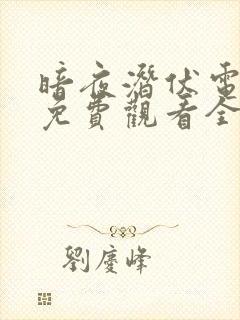 暗夜潛伏電
免費觀看全
劉慶峰